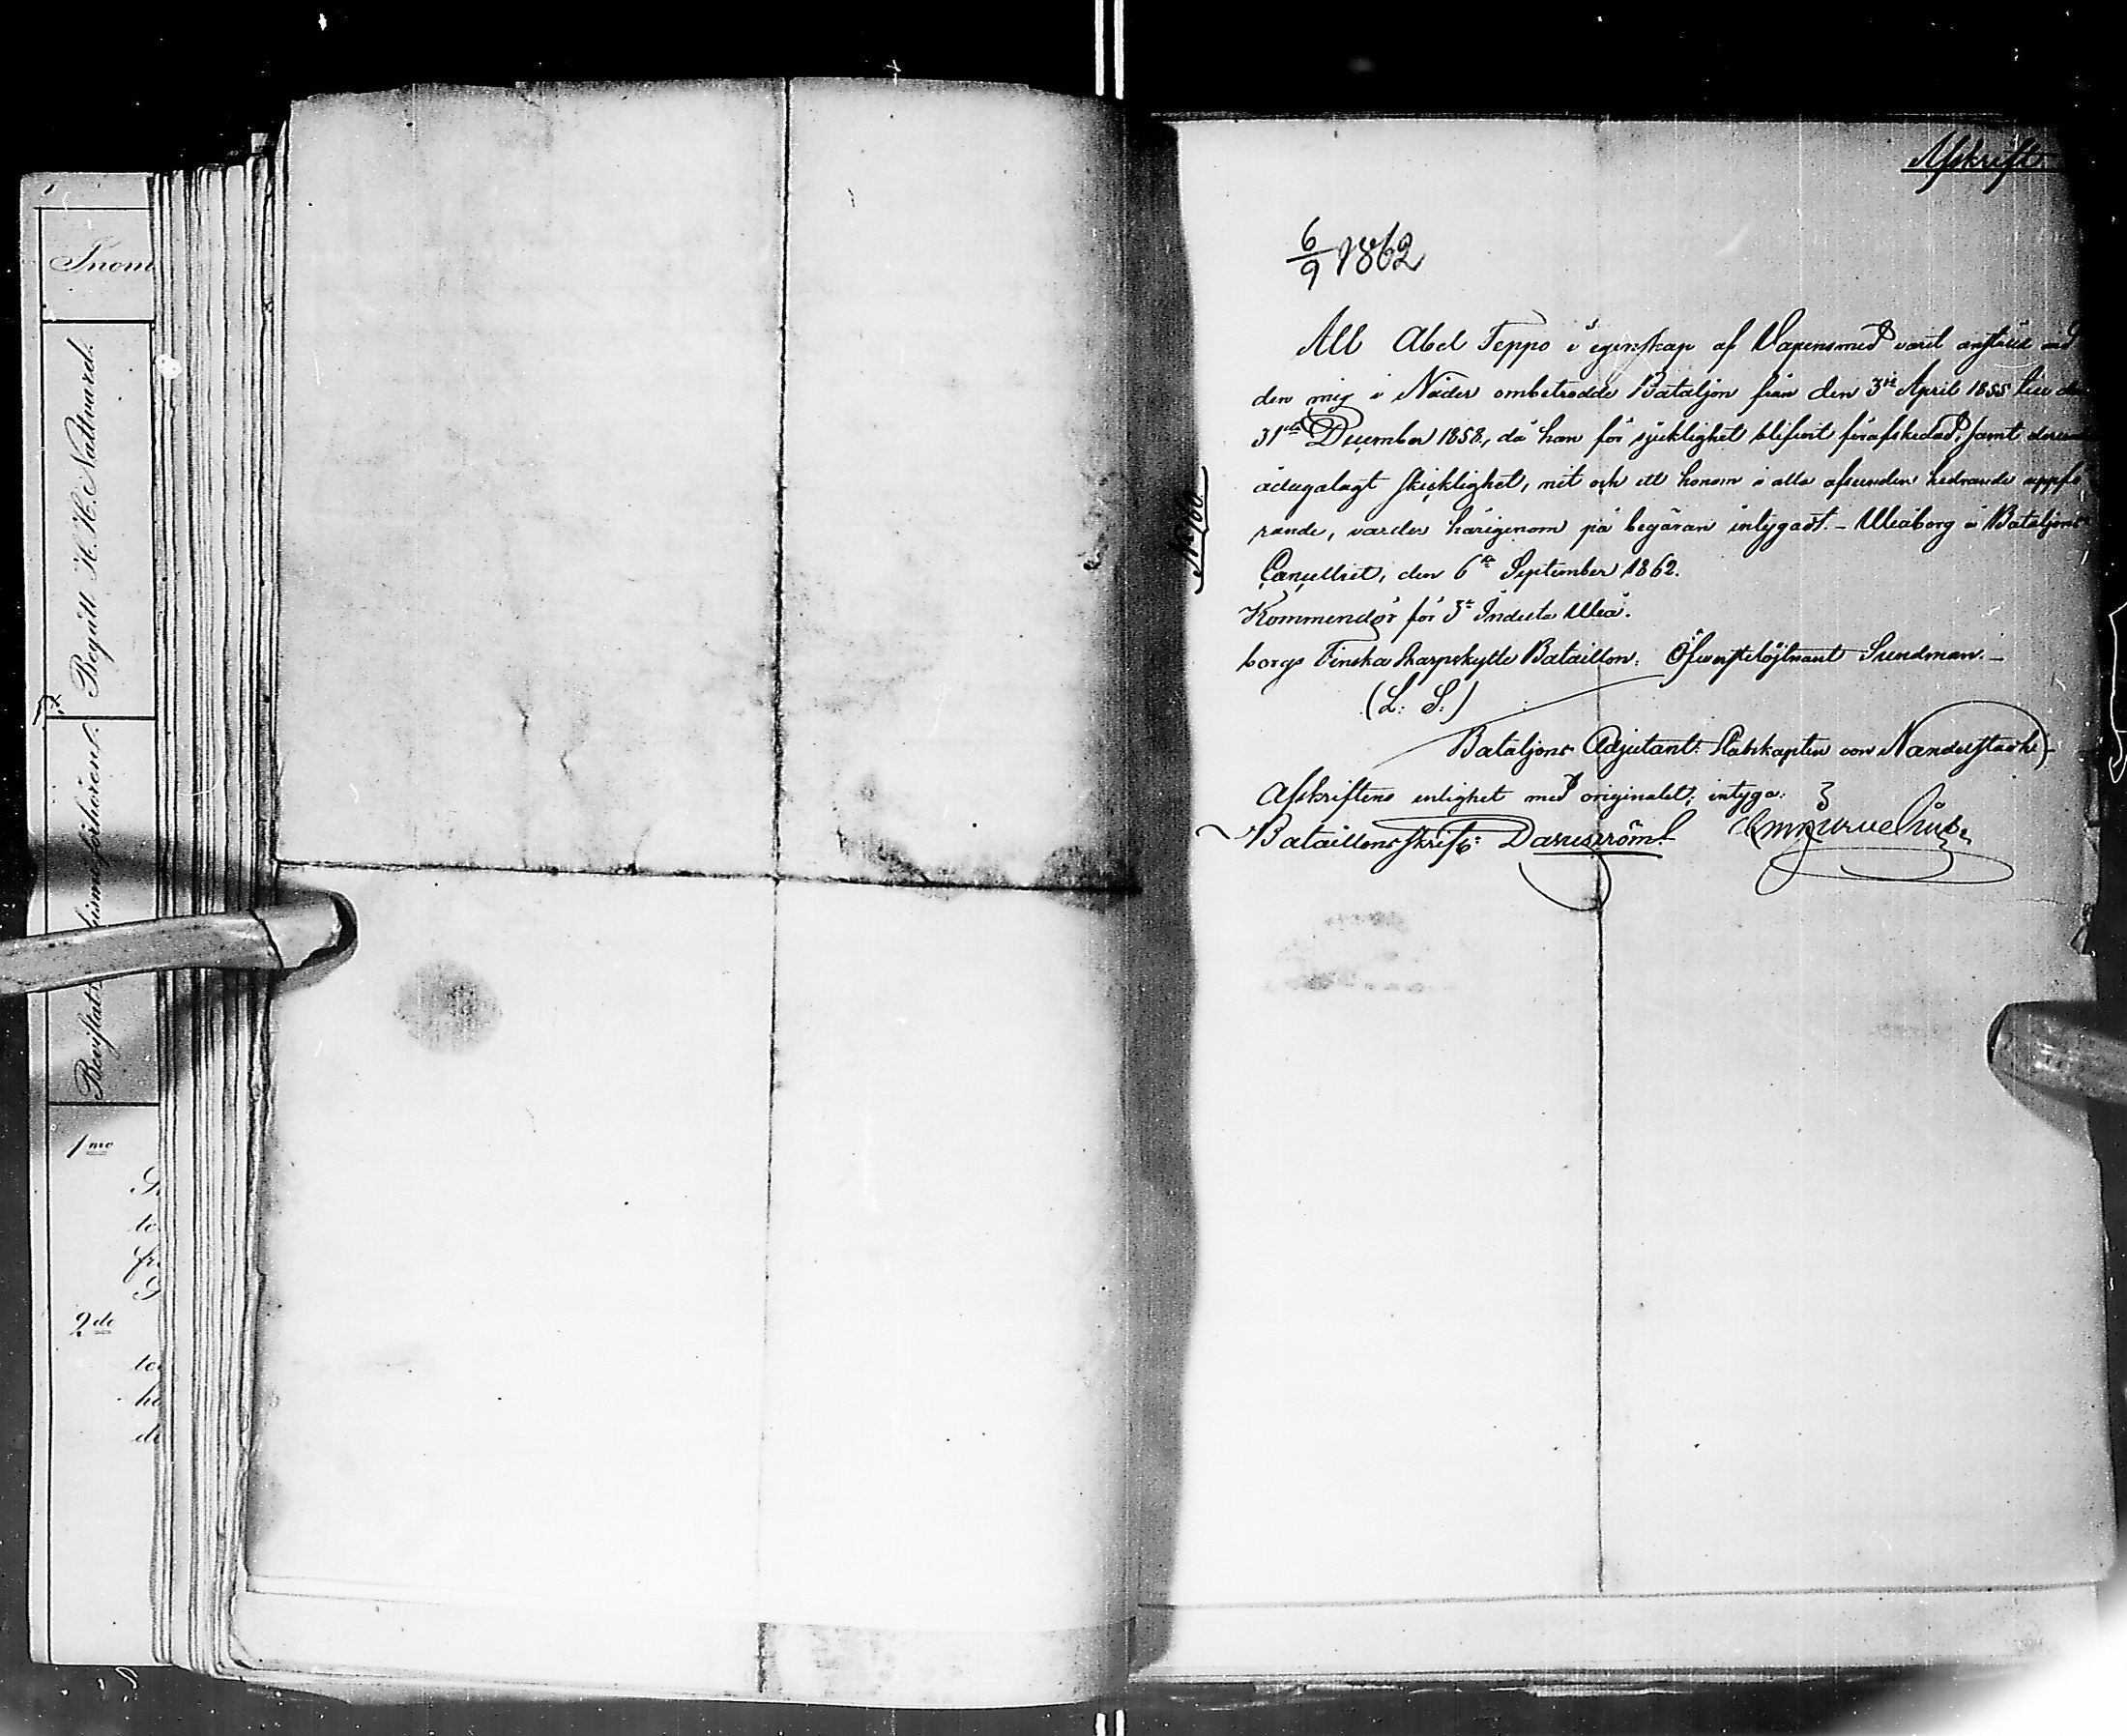 Inom
Begått H. H. Nattvard.
1mo
te
fr
2do
te
ho
di
Afskrift.
6/9 1862
No 60.
Att Abel Teppo i egenskap af Vapensmed varit anstäld vid
den mig i Nåder ombetrodde Bataljon från den 3je April 1855 till den
31sta December 1858, då han för sjuklighet blifvit förafskedad, samt
ådagalagt skicklighet, nit och ett honom i alla afseenden hedrande uppfö-
rande, varder härigenom på begäran intygadt. - Uleåborg i Bataljons
Cancelliet, den 6te September 1862.
Kommendör för 3e Indelta Uleå-
borgs Finska Skarpskytte Bataillon: Öfverstelöjtnant Sundman. -
(L: S:)
Bataljons Adjutant: Stabskapten von
Afskriftens enlighet med originalet; intyga:
Bataillonsskrifv: